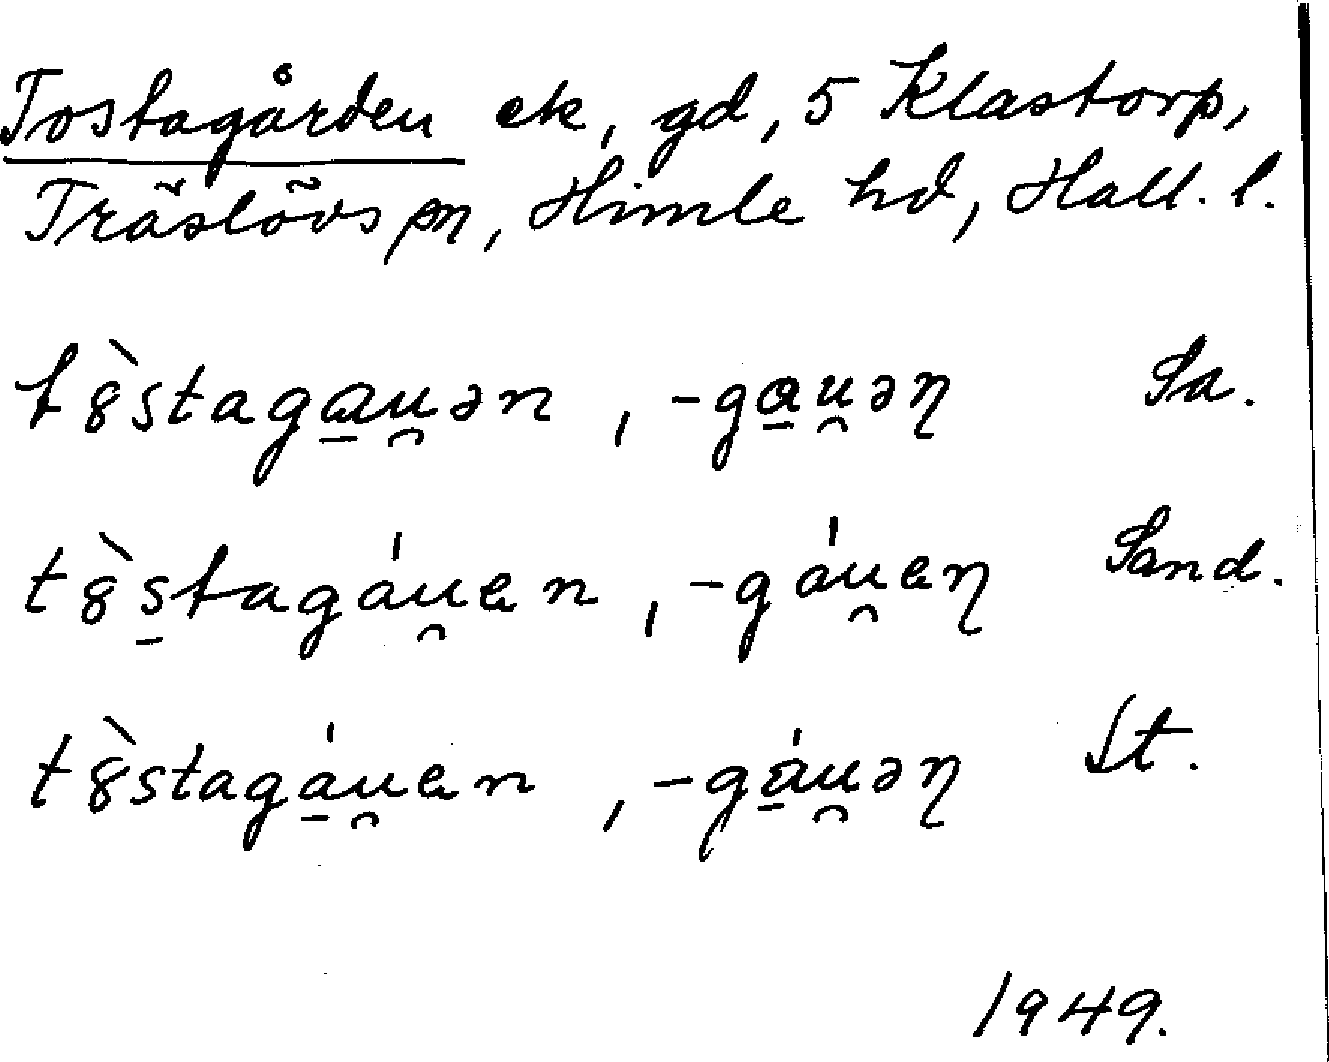 Tostagården ek, gd, 5 Klastorp,
Träslövs sn, Himle hd, Hall. l.
tȣ̀staga̠u̯ən, -ga̠u̯əƞ Sa.
tȣ̀s̠tagáu̯en, -gáu̯eƞ Sand.
tȣ̀stagá̠u̯en, -gá̠u̯əƞ St.
1949.